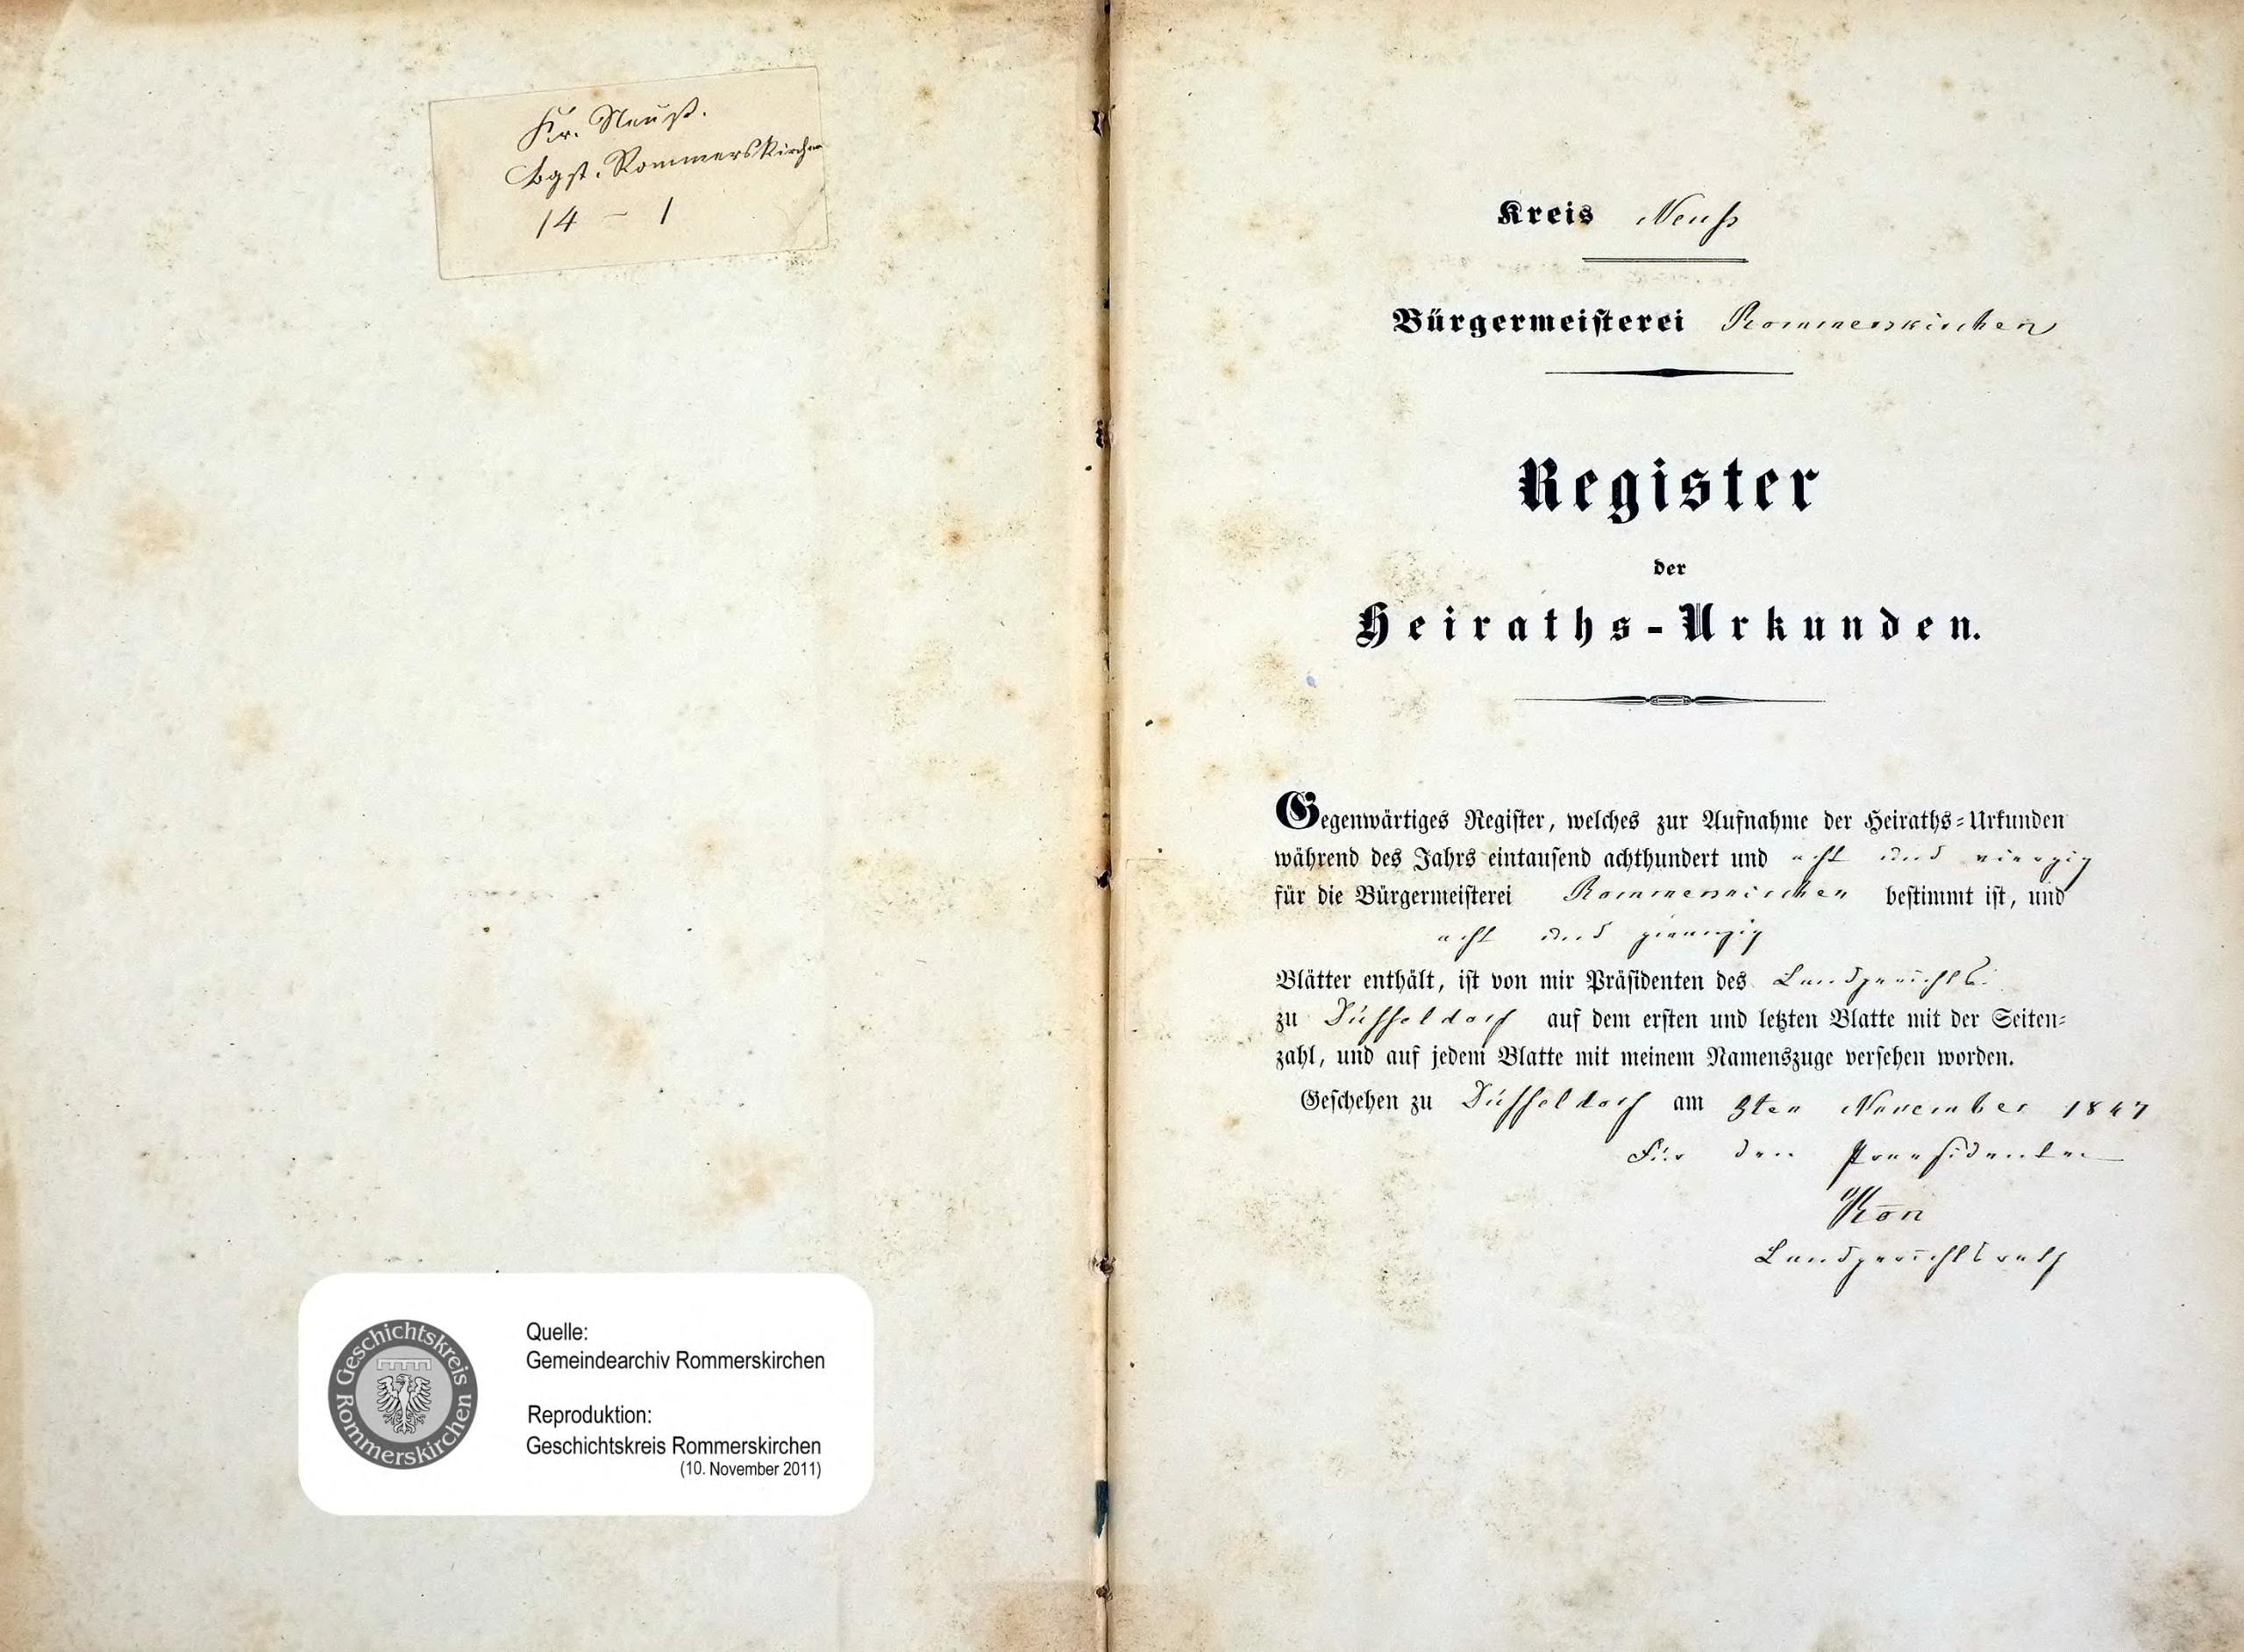 Kr. Neuß.
Bgst. Rommerskirchen
14 – 1
Kreis Neuß
Bürgermeisterei Rommerskirchen
Register
der
Heiraths-Urkunden.
Gegenwärtiges Register, welches zur Aufnahme der Heiraths-Urkunden
während des Jahrs eintausend achthundert und acht und vierzig
für die Bürgermeisterei Rommerskirchen bestimmt ist, und
acht und zwanzig
Blätter enthält, ist von mir Präsidenten des Landgerichts
zu Düsseldorf auf dem ersten und letzten Blatte mit der Seiten-
zahl, und auf jedem Blatte mit meinem Namenszuge versehen worden.
Geschehen zu Düsseldorf am ten November 1847
Für den Praesidenten
Landgerichtsrath
Geschichtskreis Rommerskirchen
Quelle:
Gemeindearchiv Rommerskirchen
Reproduktion:
Geschichtskreis Rommerskirchen
(10. November 2011)